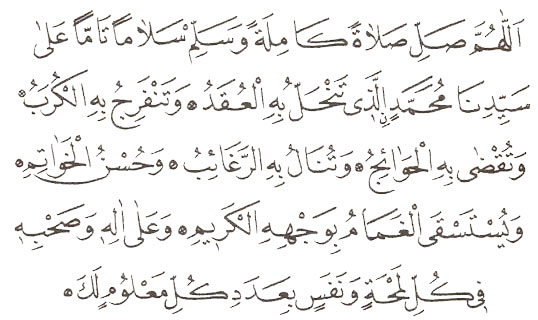 اَللّٰهُمَّ صَلِّ صَلَاةً كَامِلَةً وَسَلِّمْ سَلَامًا تَامًّا عَلٰى
سَيِّدِنَا مُحَمَّدٍ نِ الَّذِى تَنْحَلُّ بِهِ الْعُقَدُ ۞ وَتَنْفَرِجُ بِهِ الْكُرَبُ ۞
وَتُقْضٰى بِهِ الْحَوَائِجُ ۞ وَتُنَالُ بِهِ الرَّغَائِبُ ۞ وَحُسْنُ الْخَوَاتِمِ ۞
وَيُسْتَسْقَى الْغَمَامُ بِوَجْهِهِ الْكَرِيمِ ۞ وَعَلٰى اٰلِهِ وَصَحْبِهِ
فِى كُلِّ لَمْحَةٍ وَنَفَسٍ بِعَدَدِ كُلِّ مَعْلُومٍ لَكَ ۞